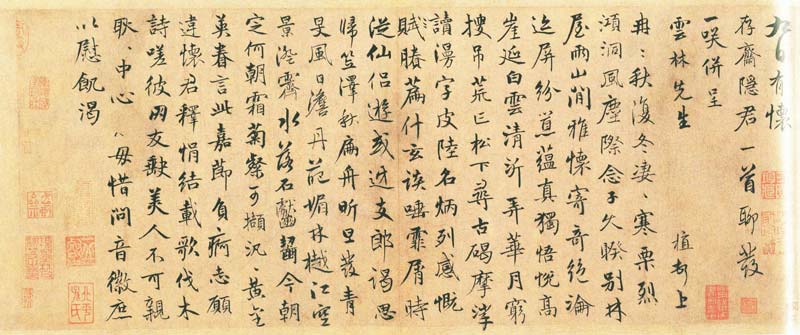 九日有懷
存齋隱君一首聊發
一咲併呈
雲林先生 植 上
冉〻秋復冬淒〻寒栗烈
澒洞風塵際念子久暌別林
屋兩山間雅懷寄奇絕淪
迹屏紛道蘊真獨悟悅高
崖延白雲清沂弄華月窮
搜吊荒亡松下尋古碣摩挲
讀漫字皮陸名炳列感慨
賦勝篇什玄談唾霏屑時
從仙侶遊或迓支郎謁思
歸笠澤秋扁舟昕旦發青
旻風日澹丹葩媚林樾江空
景澄霽水落石齾齾今朝
定何朝霜菊粲可擷況〻黃金
英眷言此嘉節負痾志願
違懷君釋悁結載歌伐木
詩嗟彼朋友缺美人不可親
耿〻中心〻毋惜問音徽庶
以慰飢渴